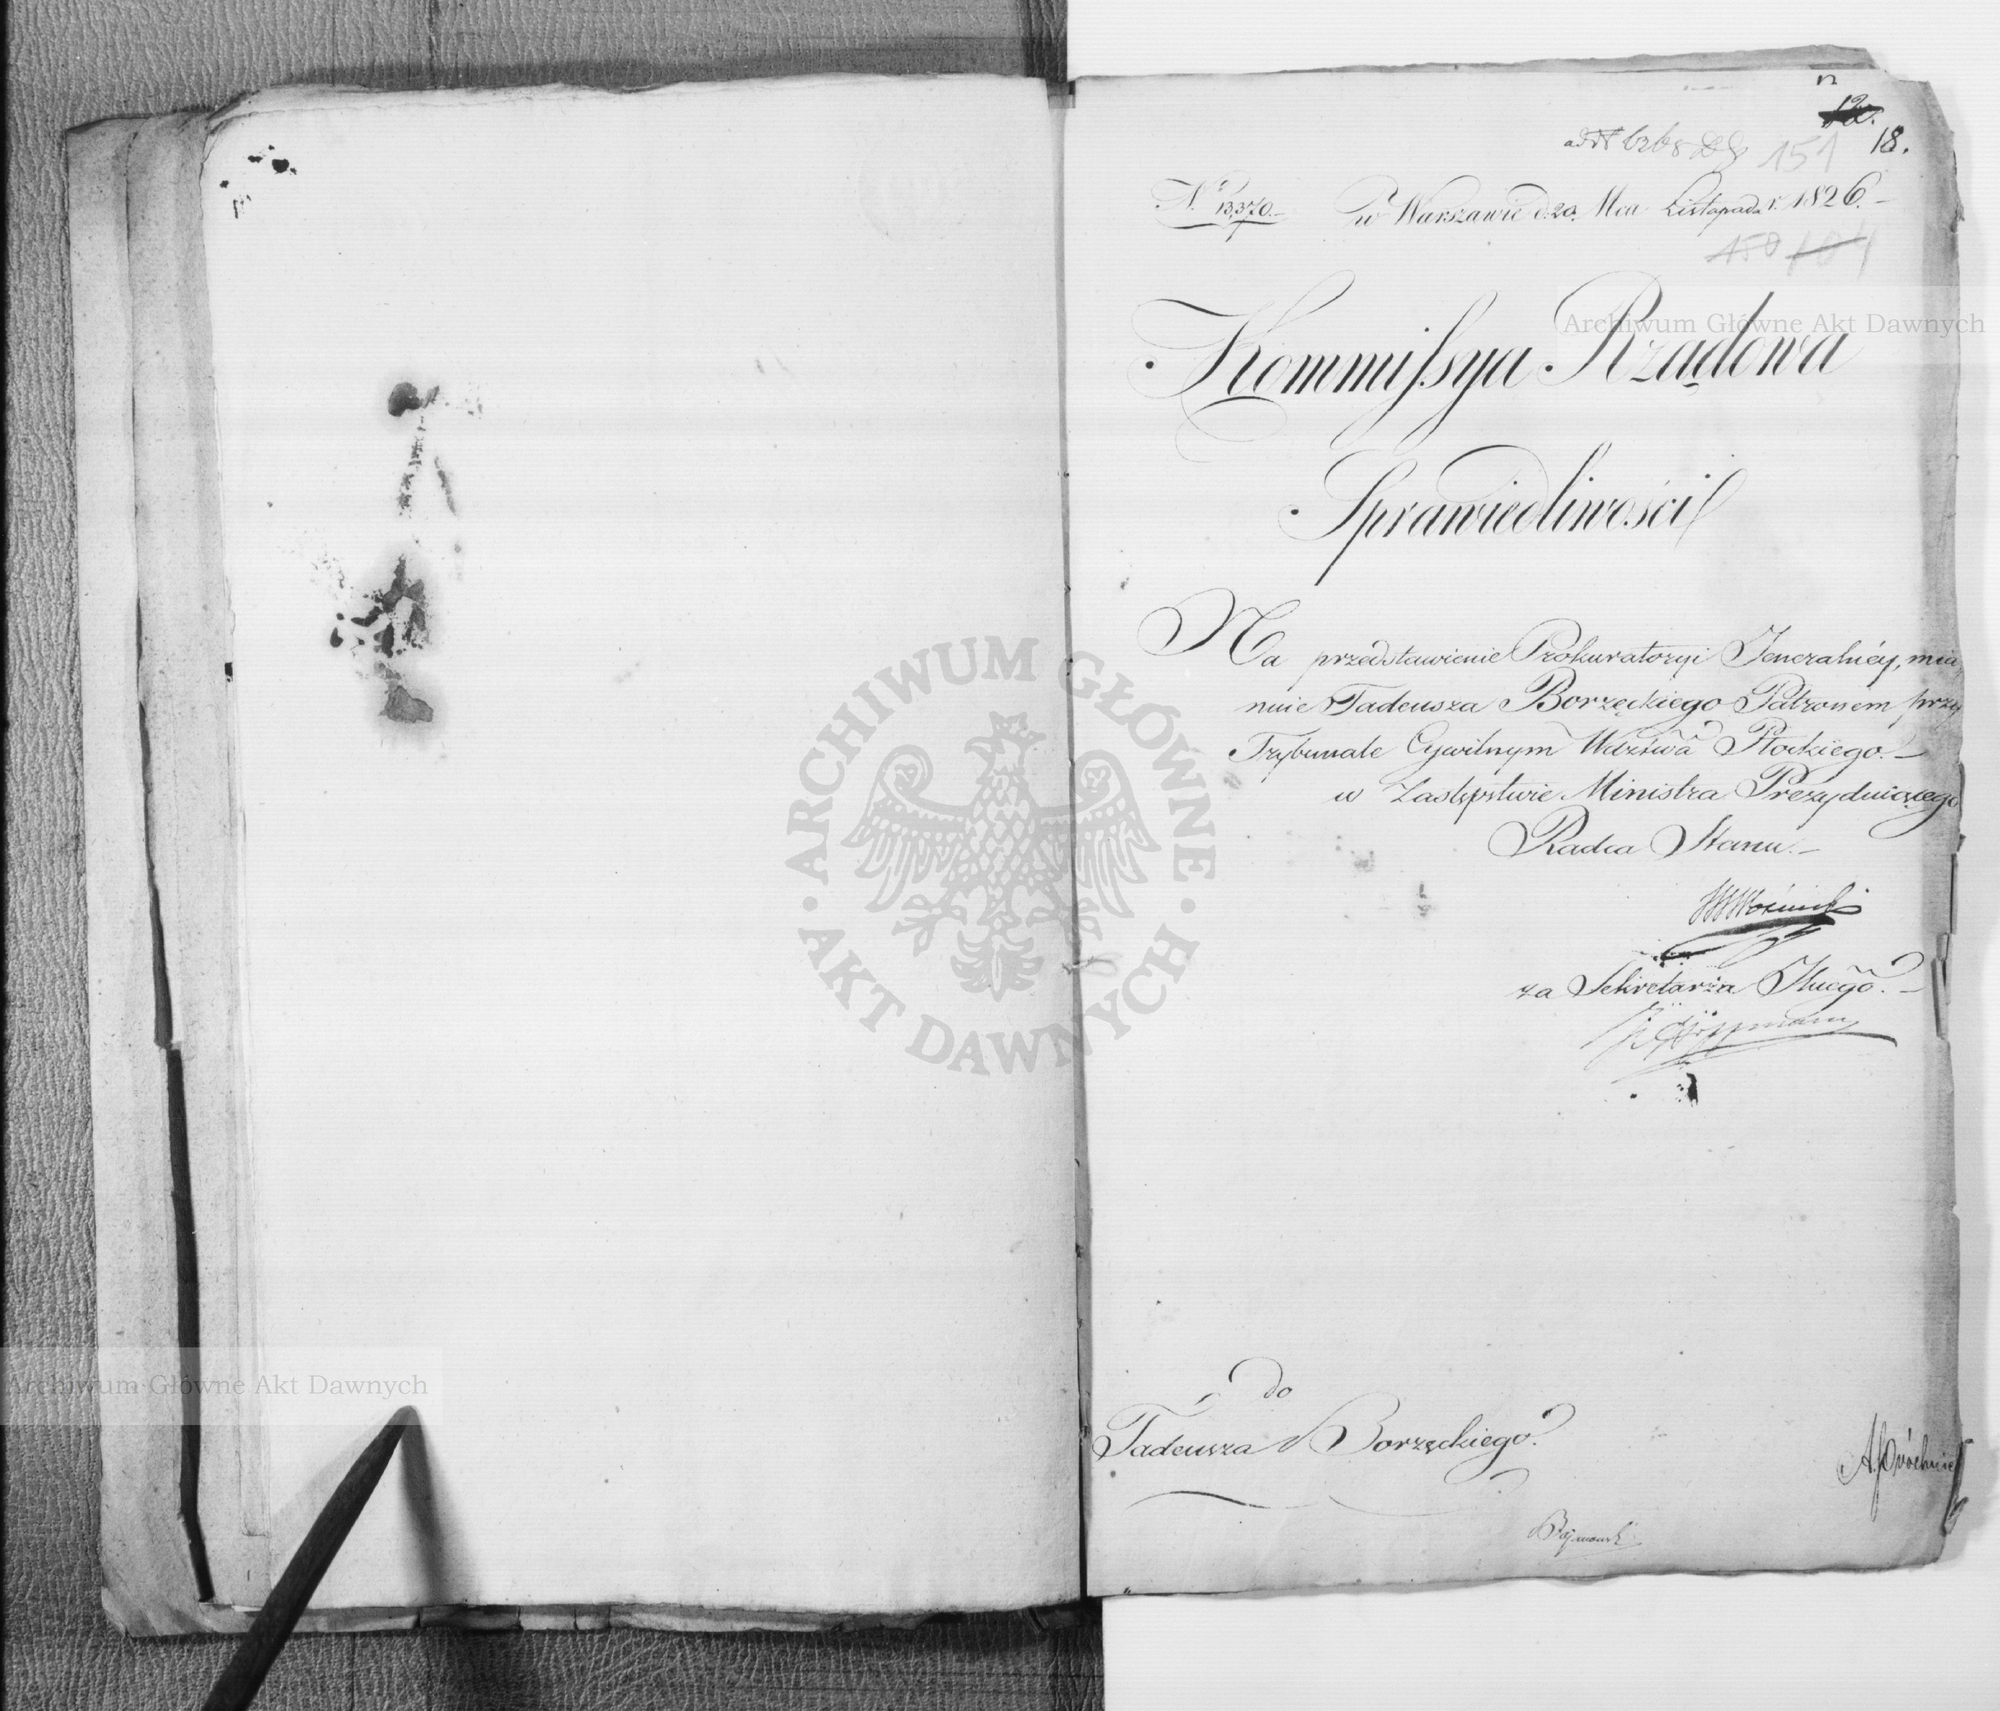 12.
18.
151
Nº 13,370.
w Warszawie d. 20. Mca Listopada r. 1826.
150 104
Kommissya Rządowa
Sprawiedliwości
Na przedstawienie Prokuratoryi Jeneralnéy, mia,
nuie Tadeusza Borzęckiego Patronem przy
Trybunale Cywilnym Wdztwa Płockiego.
w Zastępstwie Ministra Prezyduiącego
Radca Stanu.
Woźnicki
za Sekretarza Jlnego.
Hoffmann
do
Tadeusza Borzęckiego.
Archiwum Główne Akt Dawnych
Archiwum Główne Akt Dawnych
· ARCHIWUM GŁÓWNE · AKT DAWNYCH